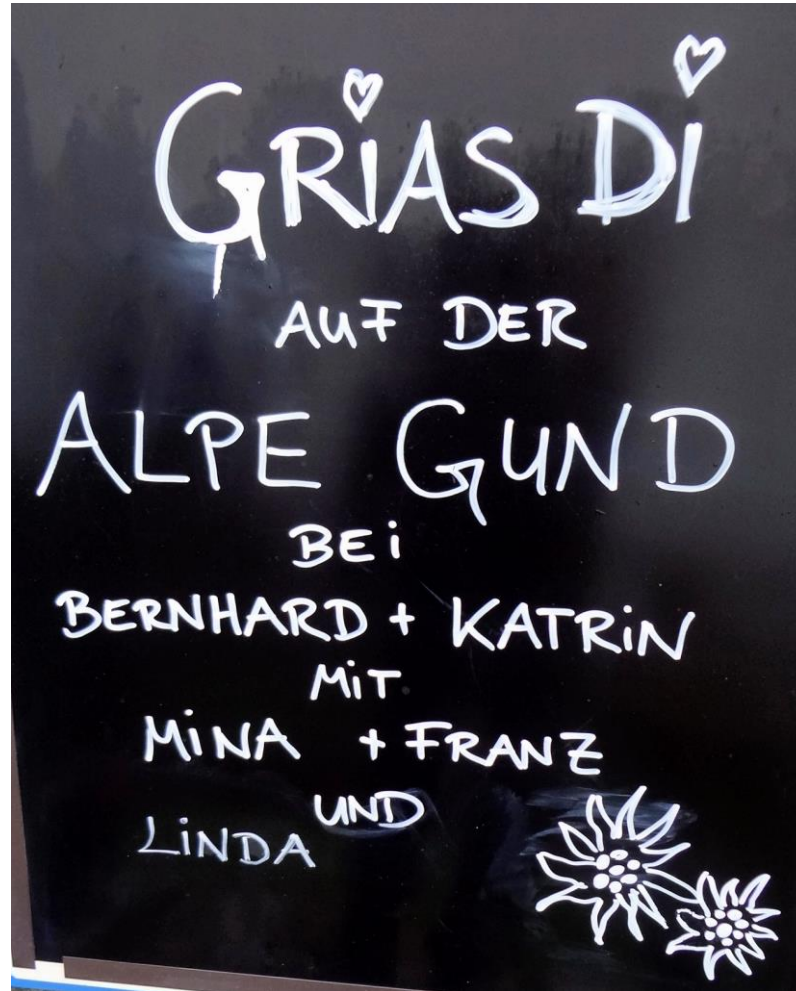 GRiAS Di
AUF DER
ALPE GUND
BEi
BERNHARD + KATRiN
MiT
MiNA + FRANZ
UND
LiNDA